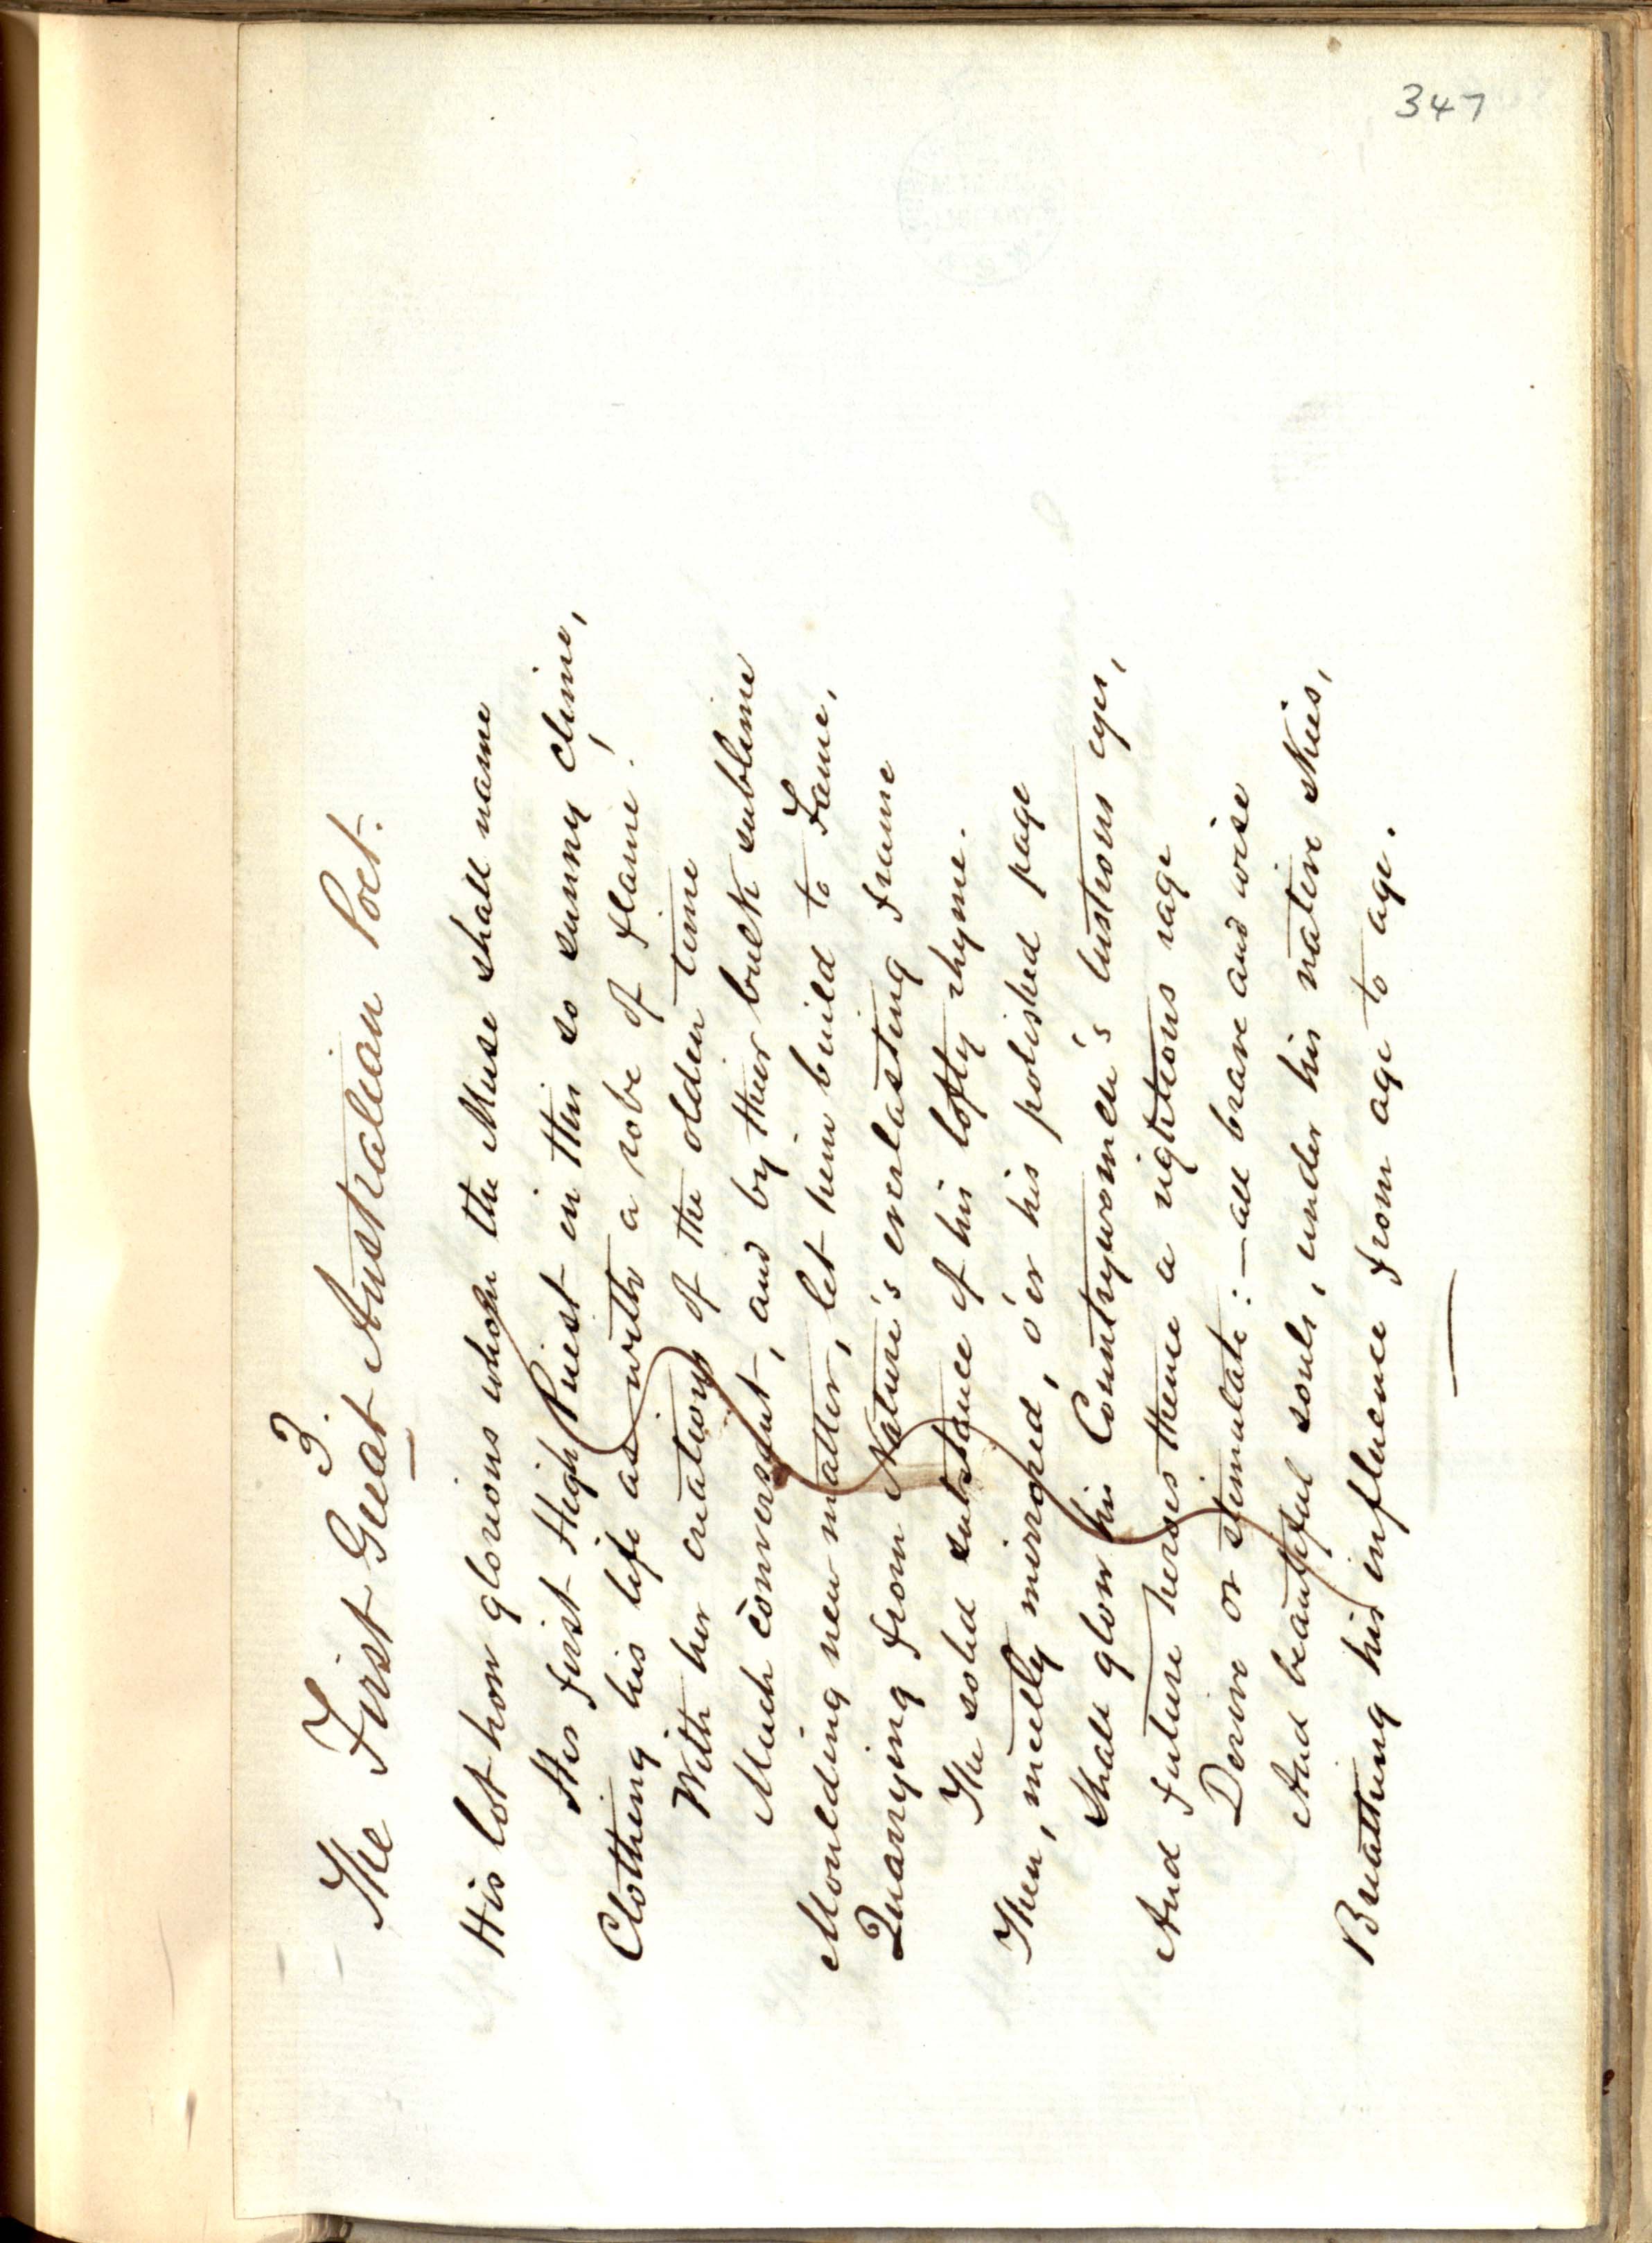 347
3.
The First Great Australian Poet.
His lot how glorious whom the Muse shall name
Her first High Priest in this so sunny clime,
Clothing his life as with a robe of flame!
With her creations of the olden time
Much conversant, and by their bulk sublime
Moulding new matter, let him build to Fame,
Quarrying from Nature's everlasting frame
The solid substance of his lofty rhyme.
Then, meetly mirrored, o'er his polished page
Shall glow his Countrywomen's lustrous eyes,
And future heroes thence a righteous rage
Derive or stimulate:—all brave and wise
And beautiful souls, under his native skies,
Breathing his influence from age to age.